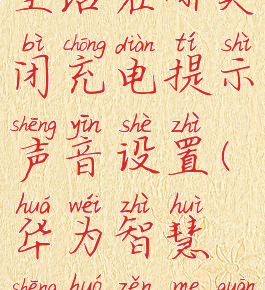 bì chōng diàn tí shì
闭充电提示
shēng yīn shè zhì
声音设置(
huá wéi zhì huì
华为智慧
shēng huó zěn me guān